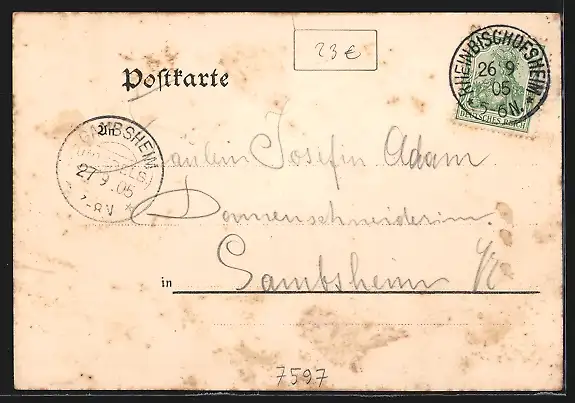 23 €
Postkarte
RHEINBISCHOFSHEIM
26 9
05
* 5-6N. *
DEUTSCHES REICH
GAMBSHEIM
27.9.05
An
Fräulein Josefin Adam
Dammenschneiderin
in Gambsheim
7597